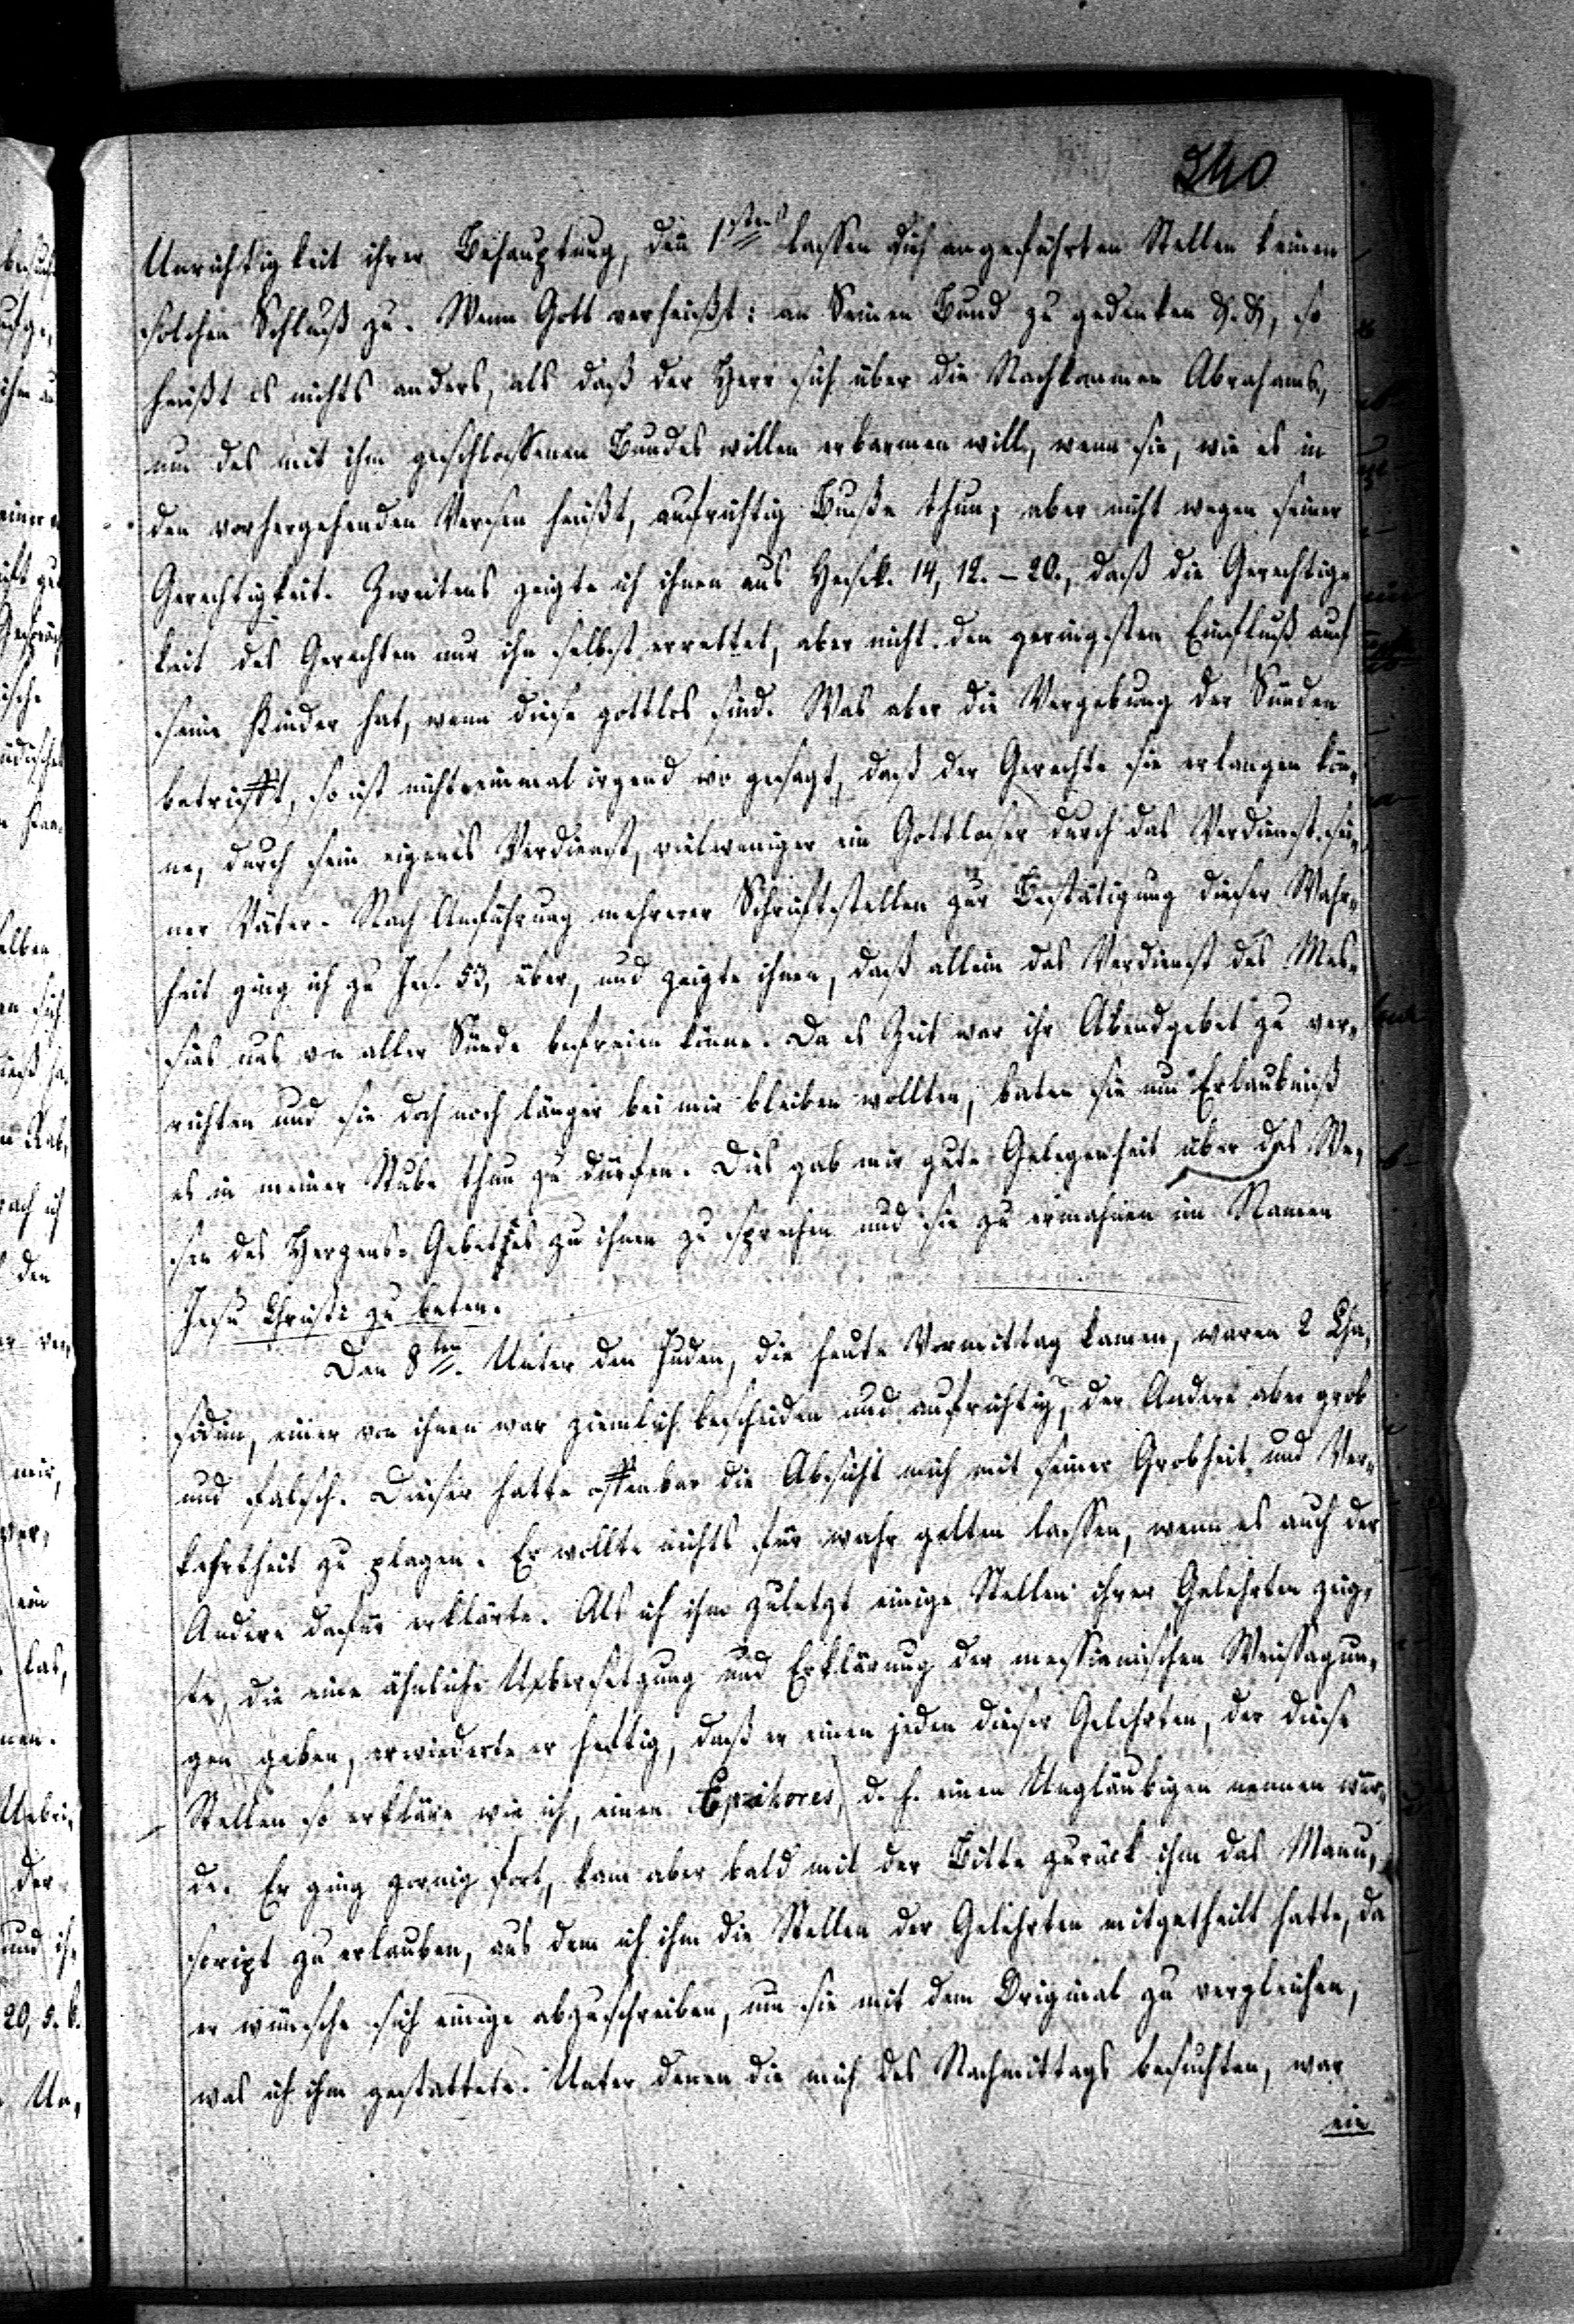 240
Unrichtigkeit ihrer Behauptung, den 1stens lassen sich angeführten Stellen keinen
solchen Schluß zu. Wenn Gott verheißt: an Seinen Bund zu gedenken &. &, so
heißt es nichts anders, als daß der Herr sich über die Nachkommen Abrahams,
um des mit ihm geschlossenen Bundes willen erbarmen will, wenn sie, wie es in
den vorhergehenden Versen heißt, aufrichtig Buße thun; aber nicht wegen seiner
Gerechtigkeit. Zweitens zeigte ich ihnen aus Hesek. 14, 12. – 20., daß die Gerechtig-
keit des Gerechten nur ihn selbst errettet, aber nicht den geringsten Einfluß auf
seine Kinder hat, wenn diese gottlos sind. Was aber die Vergebung der Sünden
betrifft, so ist nicht einmal irgend wo gesagt, daß der Gerechte sie erlangen kön-
ne, durch sein eigenes Verdienst, vielweniger ein Gottloser durch das Verdienst sei-
ner Väter. Nach Anführung mehrerer Schriftstellen zur Bestätigung dieser Wahr-
heit ging ich zu Jes. 53, über, und zeigte ihnen, daß allein das Verdienst des Mes-
sias uns von aller Sünde befreien könne. Da es Zeit war ihr Abendgebet zu ver-
richten und sie doch noch länger bei mir bleiben wollten, baten sie um Erlaubniß
es in meiner Stube thun zu dürfen. Dies gab mir gute Gelegenheit über das We-
sen des Herzens-Gebethes zu ihnen zu sprechen und sie zu ermahnen im Namen
Jesu Christi zu beten.
Den 8ten. Unter den Juden, die heute Vormittag kamen, waren 2 Cha-
sidim, einer von ihnen war ziemlich bescheiden und aufrichtig, der Andere aber grob
und falsch. Dieser hatte offenbar die Absicht mich mit seiner Grobheit und Ver-
kehrtheit zu plagen. Er wollte nichts für wahr gelten lassen, wenn es auch der
Andere dafür erklärte. Als ich ihm zuletzt einige Stellen ihrer Gelehrten zeig-
te, die eine ähnliche Uebersetzung und Erklärung der messianischen Weissagun-
gen geben, erwiederte er heftig, daß er einen jeden dieser Gelehrten, der diese
Stellen so erkläre wie ich, einen Epikores, d. h. einen Ungläubigen nennen wür-
de. Er ging zornig fort, kam aber bald mit der Bitte zurück ihm das Manu-
script zu erlauben, aus dem ich ihm die Stellen der Gelehrten mitgetheilt hatte, da
er wünsche sich einige abzuschreiben, um sie mit dem Original zu vergleichen,
was ich ihm gestattete. Unter denen die mich des Nachmittags besuchten, war
ein